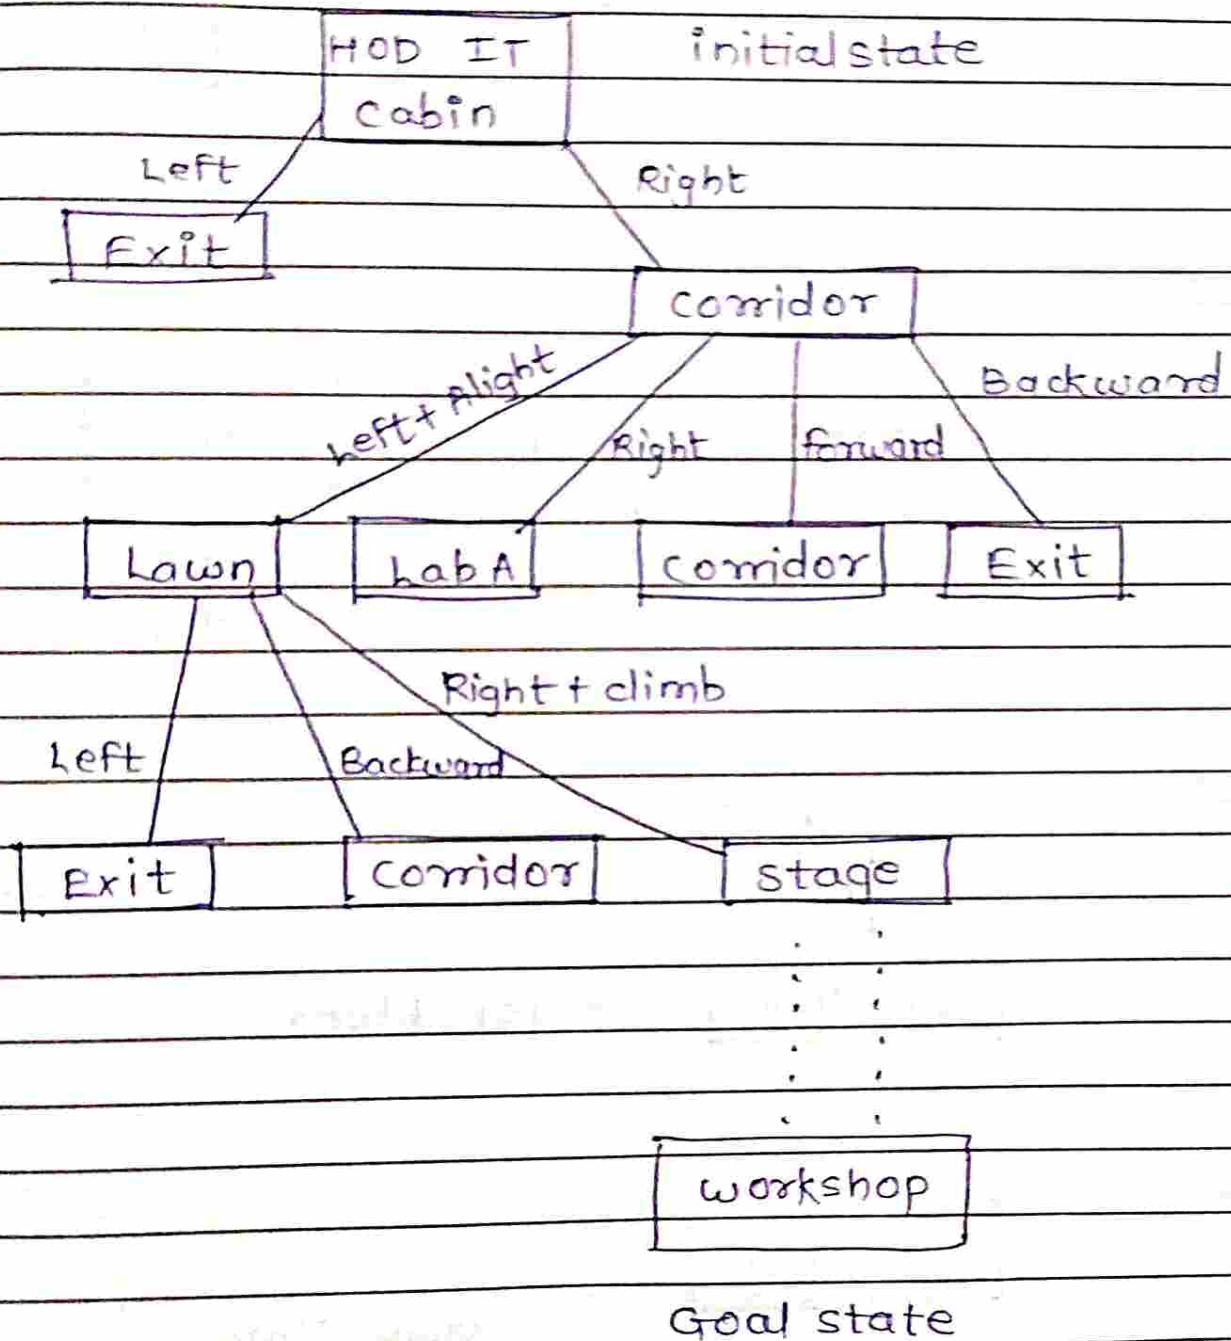 HOD IT initial state
Cabin
Left
Right
Exit
Corridor
Left + Alight
Backward
Right
forward
Lawn
Lab A
Corridor
Exit
Right + climb
Left
Backward
Exit
Corridor
Stage
workshop
Goal state